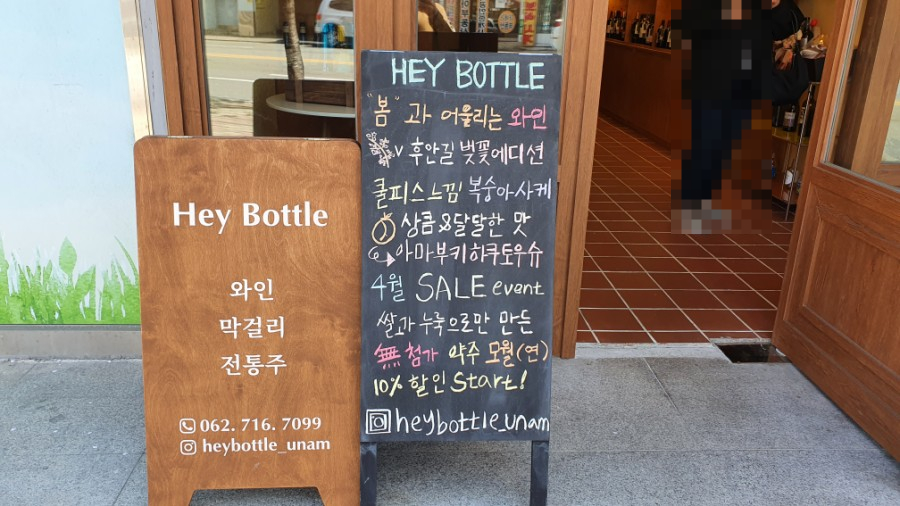 Hey Bottle
와인
막걸리
전통주
062. 716. 7099
heybottle_unam
HEY BOTTLE
"봄"과 어울리는 와인
v 후안길 벚꽃에디션
쿨피스느낌 복숭아사케
상큼&달달한 맛
아마부키하쿠토우슈
4월 SALE event
쌀과 누룩으로만 만든
無첨가 약주 모월(연)
10% 할인 Start!
heybottle_unam